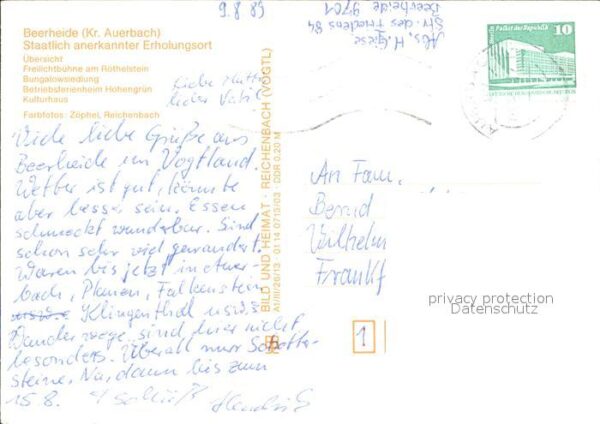 Beerheide (Kr. Auerbach)
Staatlich anerkannter Erholungsort
Übersicht
Freilichtbühne am Röthelstein
Bungalowsiedlung
Betriebsferienheim Hohengrün
Kulturhaus
Farbfotos: Zöphel, Reichenbach
9.8.89
Abs. H. Giese
Str. des Friedens 84
Beerheide 9701
Liebe Mutti
lieber Vati!
Viele liebe Grüße aus
Beerheide im Vogtland.
Wetter ist gut, könnte
aber besser sein. Essen
schmeckt wunderbar. Sind
schon sehr viel gewandert.
Waren bis jetzt in Auer-
bach, Plauen, Falkenstein
Klingenthal usw.
Wanderwege sind hier nicht
besonders. Überall nur Schotter-
steine. Na, dann bis zum
15.8. Tschüß
BILD UND HEIMAT · REICHENBACH (VOGTL)
A1/III/26/13 01 14 0713/03 · DDR 0,20 M
Palast der Republik
10
An Fam.
Bernd
Wilhelm
Frankf
1
privacy protection
Datenschutz